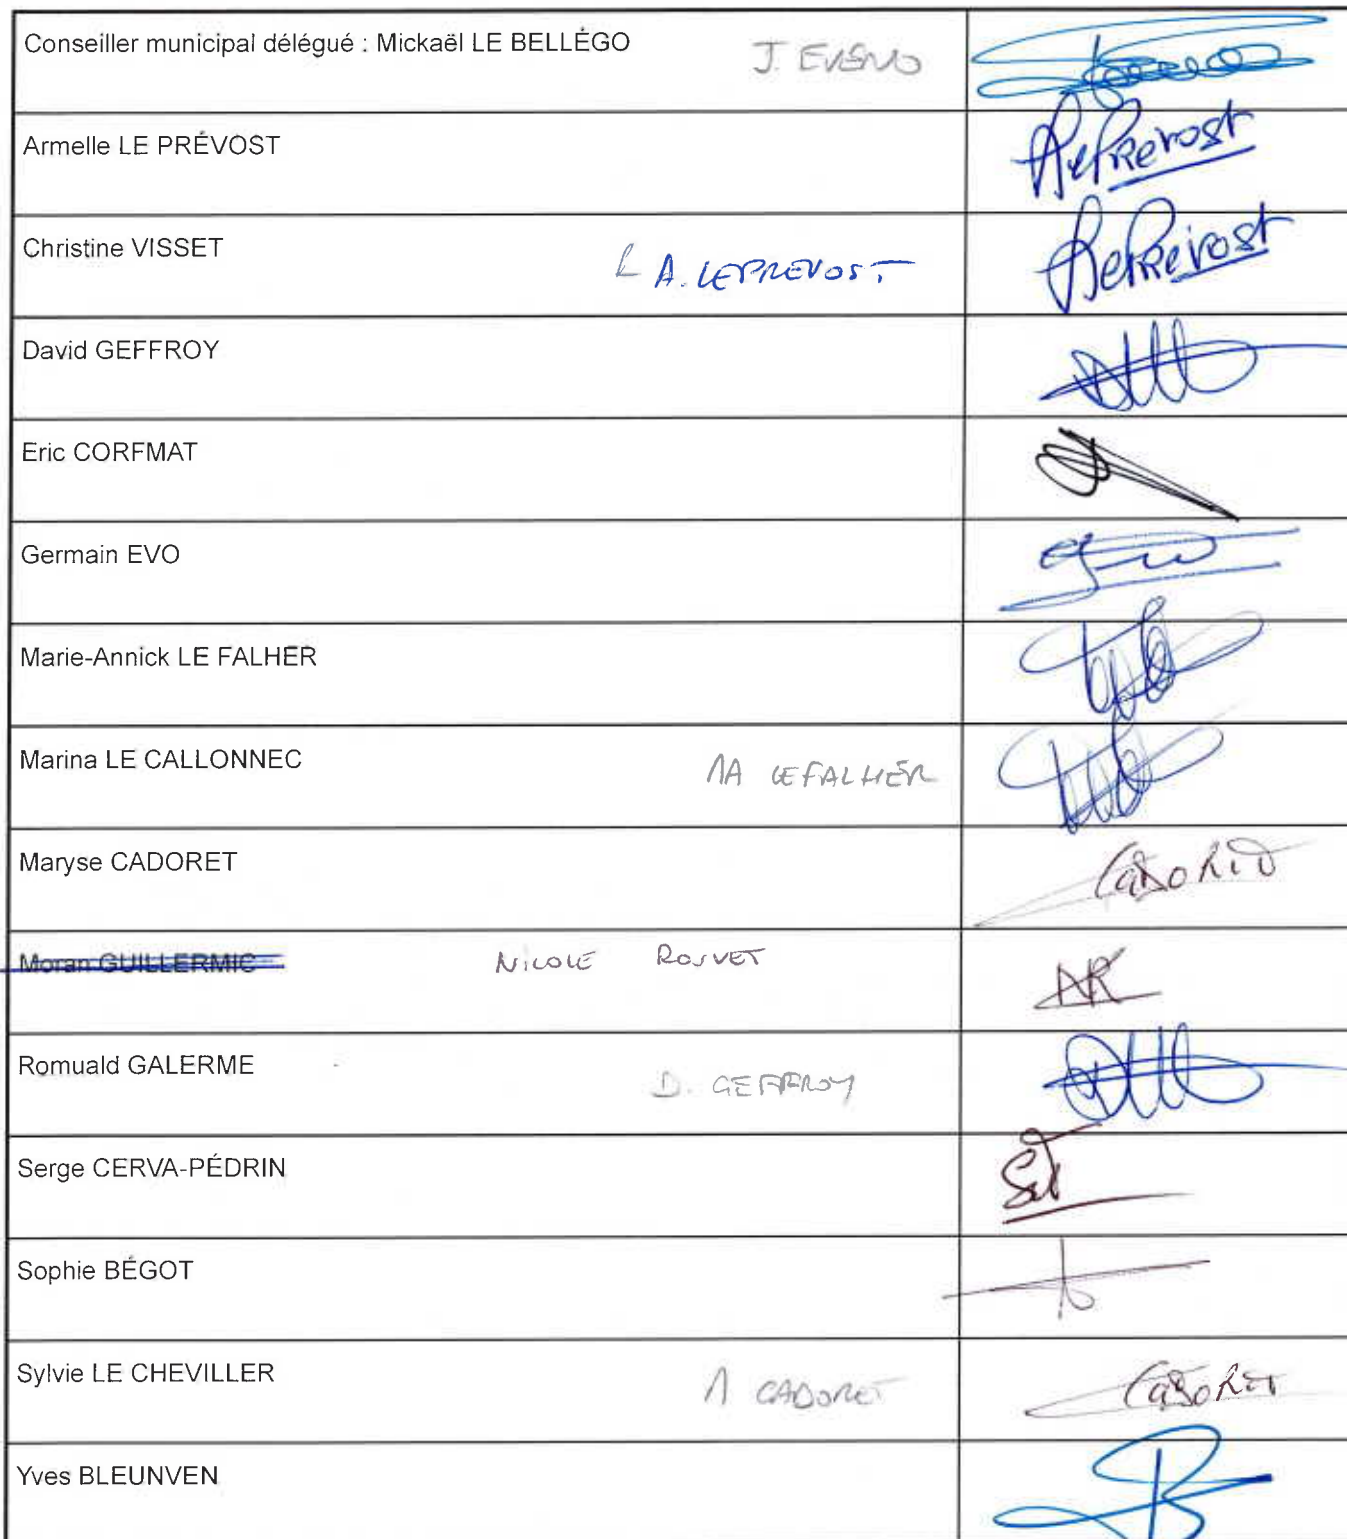 Conseiller municipal délégué : Mickaël LE BELLÉGO J. EVENO
Armelle LE PRÉVOST LePrevost
Christine VISSET A. LEPREVOST LePrevost
David GEFFROY
Eric CORFMAT
Germain EVO
Marie-Annick LE FALHER
Marina LE CALLONNEC MA LEFALHER
Maryse CADORET CADORET
Moran GUILLERMIC NICOLE ROUVET NR
Romuald GALERME D. GEFFROY
Serge CERVA-PÉDRIN
Sophie BÉGOT
Sylvie LE CHEVILLER M CADORET CADORET
Yves BLEUNVEN